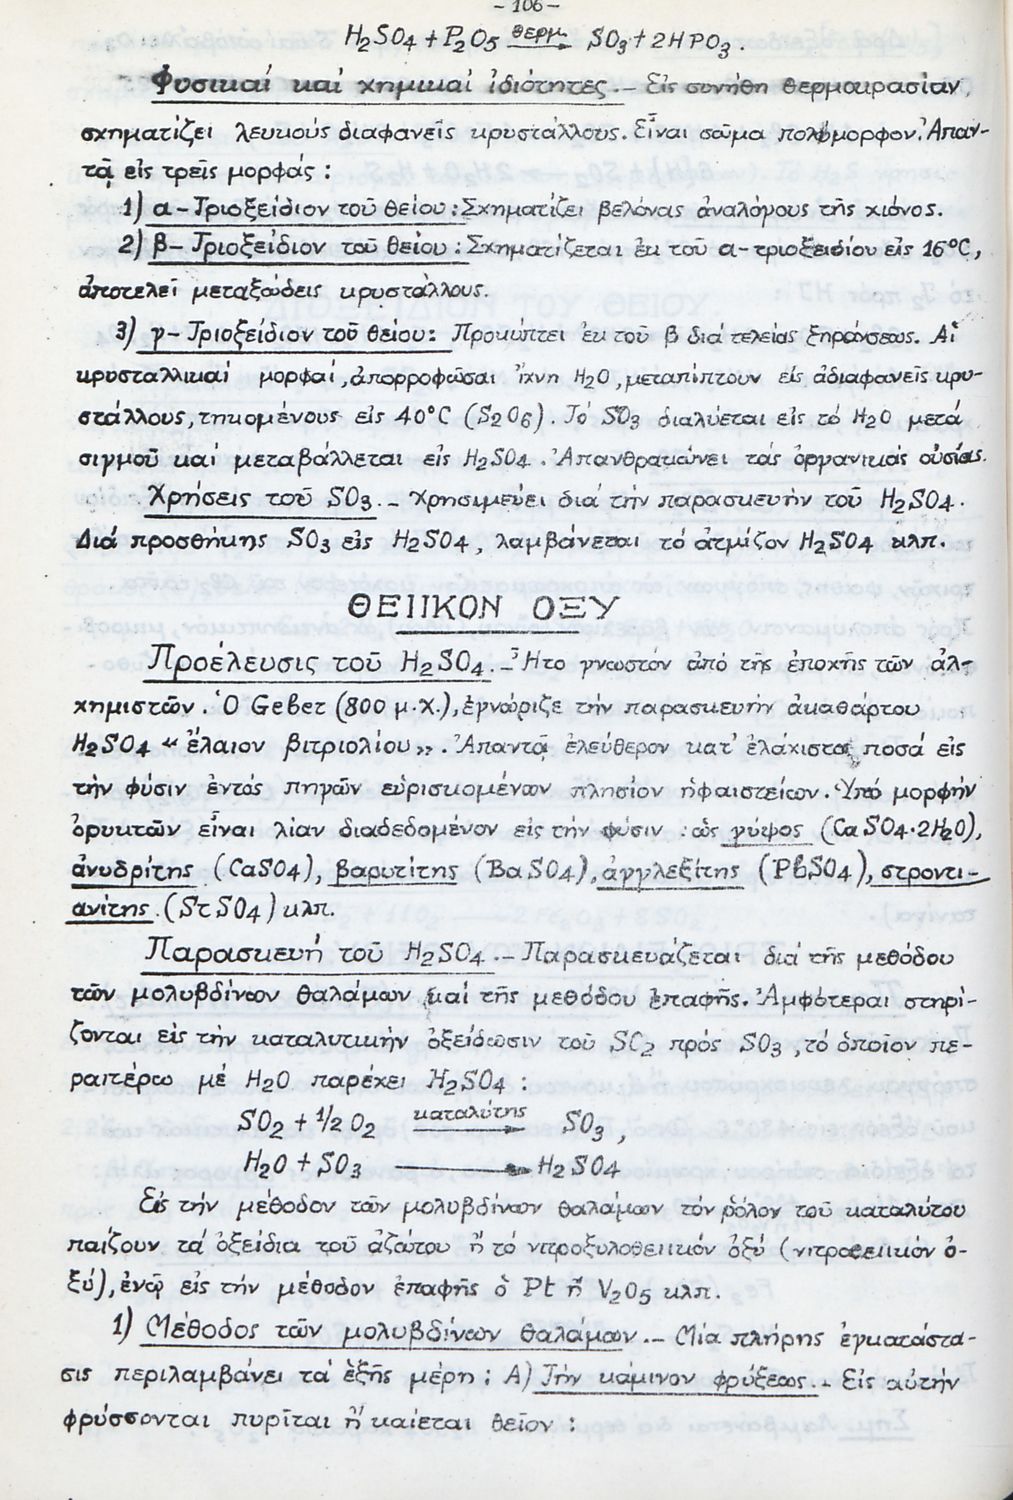 - 106 -
H₂SO₄ + P₂O₅ θερμ. → SO₃ + 2HPO₃.
Φυσικαί καί χημικαί ἰδιότητες.- Εἰς συνήθη θερμοκρασίαν,
σχηματίζει λευκούς διαφανεῖς κρυστάλλους. Εἶναι σῶμα πολύμορφον. Ἀπαν-
τᾷ εἰς τρεῖς μορφάς :
1) α-Τριοξείδιον τοῦ θείου : Σχηματίζει βελόνας ἀναλόγους τῆς χιόνος.
2) β-Τριοξείδιον τοῦ θείου : Σχηματίζεται ἐκ τοῦ α-τριοξειδίου εἰς 16°C,
ἀποτελεῖ μεταξώδεις κρυστάλλους.
3) γ-Τριοξείδιον τοῦ θείου : Προκύπτει ἐκ τοῦ β διά τελείας ξηράνσεως. Αἱ
κρυσταλλικαί μορφαί, ἀπορροφῶσαι ἴχνη H₂O, μεταπίπτουν εἰς ἀδιαφανεῖς κρυ-
στάλλους, τηκομένους εἰς 40°C (S₂O₆). Το SO₃ διαλύεται εἰς τό H₂O μετά
σιγμοῦ καί μεταβάλλεται εἰς H₂SO₄. Ἀπανθρακώνει τάς ὀργανικάς οὐσίας.
Χρήσεις τοῦ SO₃.- Χρησιμεύει διά τήν παρασκευήν τοῦ H₂SO₄.
Διά προσθήκης SO₃ εἰς H₂SO₄, λαμβάνεται τό ἀτμίζον H₂SO₄ κλπ.
ΘΕΙΙΚΟΝ ΟΞΥ
Προέλευσις τοῦ H₂SO₄.- Ἦτο γνωστόν ἀπό τῆς ἐποχῆς τῶν ἀλ-
χημιστῶν. Ὁ Geber (800 μ.Χ.), ἐγνώριζε τήν παρασκευήν ἀκαθάρτου
H₂SO₄ «ἔλαιον βιτριολίου». Ἀπαντᾷ ἐλεύθερον κατ' ἐλάχιστα ποσά εἰς
τήν φύσιν ἐντός πηγῶν εὑρισκομένων πλησίον ἡφαιστείων. Ὑπό μορφήν
ὀρυκτῶν εἶναι λίαν διαδεδομένον εἰς τήν φύσιν : ὡς γύψος (CaSO₄·2H₂O),
ἀνυδρίτης (CaSO₄), βαρυτίτης (BaSO₄), ἀγγλεξίτης (PbSO₄), στροντι-
ανίτης (SrSO₄) κλπ.
Παρασκευή τοῦ H₂SO₄.- Παρασκευάζεται διά τῆς μεθόδου
τῶν μολυβδίνων θαλάμων καί τῆς μεθόδου ἐπαφῆς. Ἀμφότεραι στηρί-
ζονται εἰς τήν καταλυτικήν ὀξείδωσιν τοῦ SO₂ πρός SO₃, τό ὁποῖον πε-
ραιτέρω μέ H₂O παρέχει H₂SO₄ :
SO₂ + 1/2 O₂ καταλύτης → SO₃,
H₂O + SO₃ → H₂SO₄
Εἰς τήν μέθοδον τῶν μολυβδίνων θαλάμων τόν ρόλον τοῦ καταλύτου
παίζουν τά ὀξείδια τοῦ ἀζώτου ἤ τό νιτροξυλοθειικόν ὀξύ (νιτροθειικόν ὀ-
ξύ), ἐνῷ εἰς τήν μέθοδον ἐπαφῆς ὁ Pt ἤ V₂O₅ κλπ.
1) Μέθοδος τῶν μολυβδίνων θαλάμων.- Μία πλήρης ἐγκατάστα-
σις περιλαμβάνει τά ἑξῆς μέρη : Α) Τήν κάμινον φρύξεως.- Εἰς αὐτήν
φρύσσονται πυρῖται ἤ καίεται θεῖον :